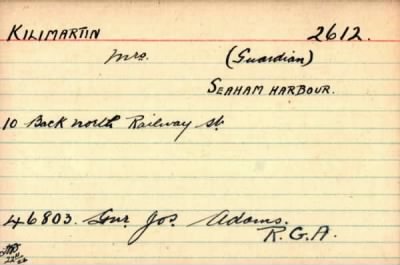 KILIMARTIN 2612.
Mrs. (Guardian)
SEAHAM HARBOUR.
10 Back North Railway St.
46803. Gnr. Jos. Adams.
R.G.A.